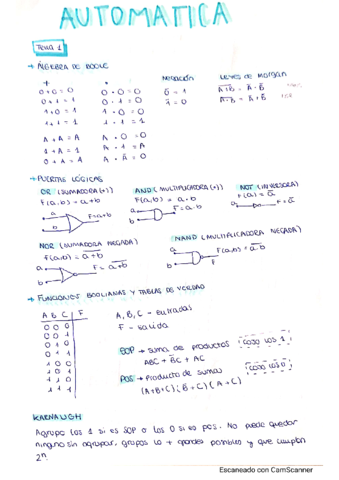 AUTOMATICA
Tema 1
→ ALGEBRA DE BOOLE
+ · Negación Leyes de Morgan
0+0=0 0·0=0 0̅=1
0+1=1 0·1=0 1̅=0
1+0=1 1·0=0
1+1=1 1·1=1
A+A=A A·0=0
1+A=1 A·1=A
0+A=A A·A̅=0
→ PUERTAS LÓGICAS
OR (SUMADORA (+)) AND (MULTIPLICADORA (·)) NOT (INVERSORA)
f(a,b)=a+b F(a,b)=a·b f(a)=a̅
a b F=a+b a b F=a·b a F=a̅
NOR (SUMADORA NEGADA) NAND (MULTIPLICADORA NEGADA)
f(a,b)=a̅+̅b̅ F(a,b)=a̅·̅b̅
a b F=a̅+̅b̅ a b F=a̅·̅b̅
→ FUNCIONES BOOLIANAS Y TABLAS DE VERDAD
A B C F A, B, C - entradas
0 0 0 F - salida
0 0 1
0 1 0 SOP → suma de productos (cojo los 1)
0 1 1
1 0 0
1 0 1 POS → Producto de sumas (cojo los 0)
1 1 0
1 1 1
KARNAUGH
Agrupo los 1 si es SOP o los 0 si es pos. No puede quedar
ninguno sin agrupar, grupos lo + grandes posibles y que cumplan
2ⁿ.
Escaneado con CamScanner